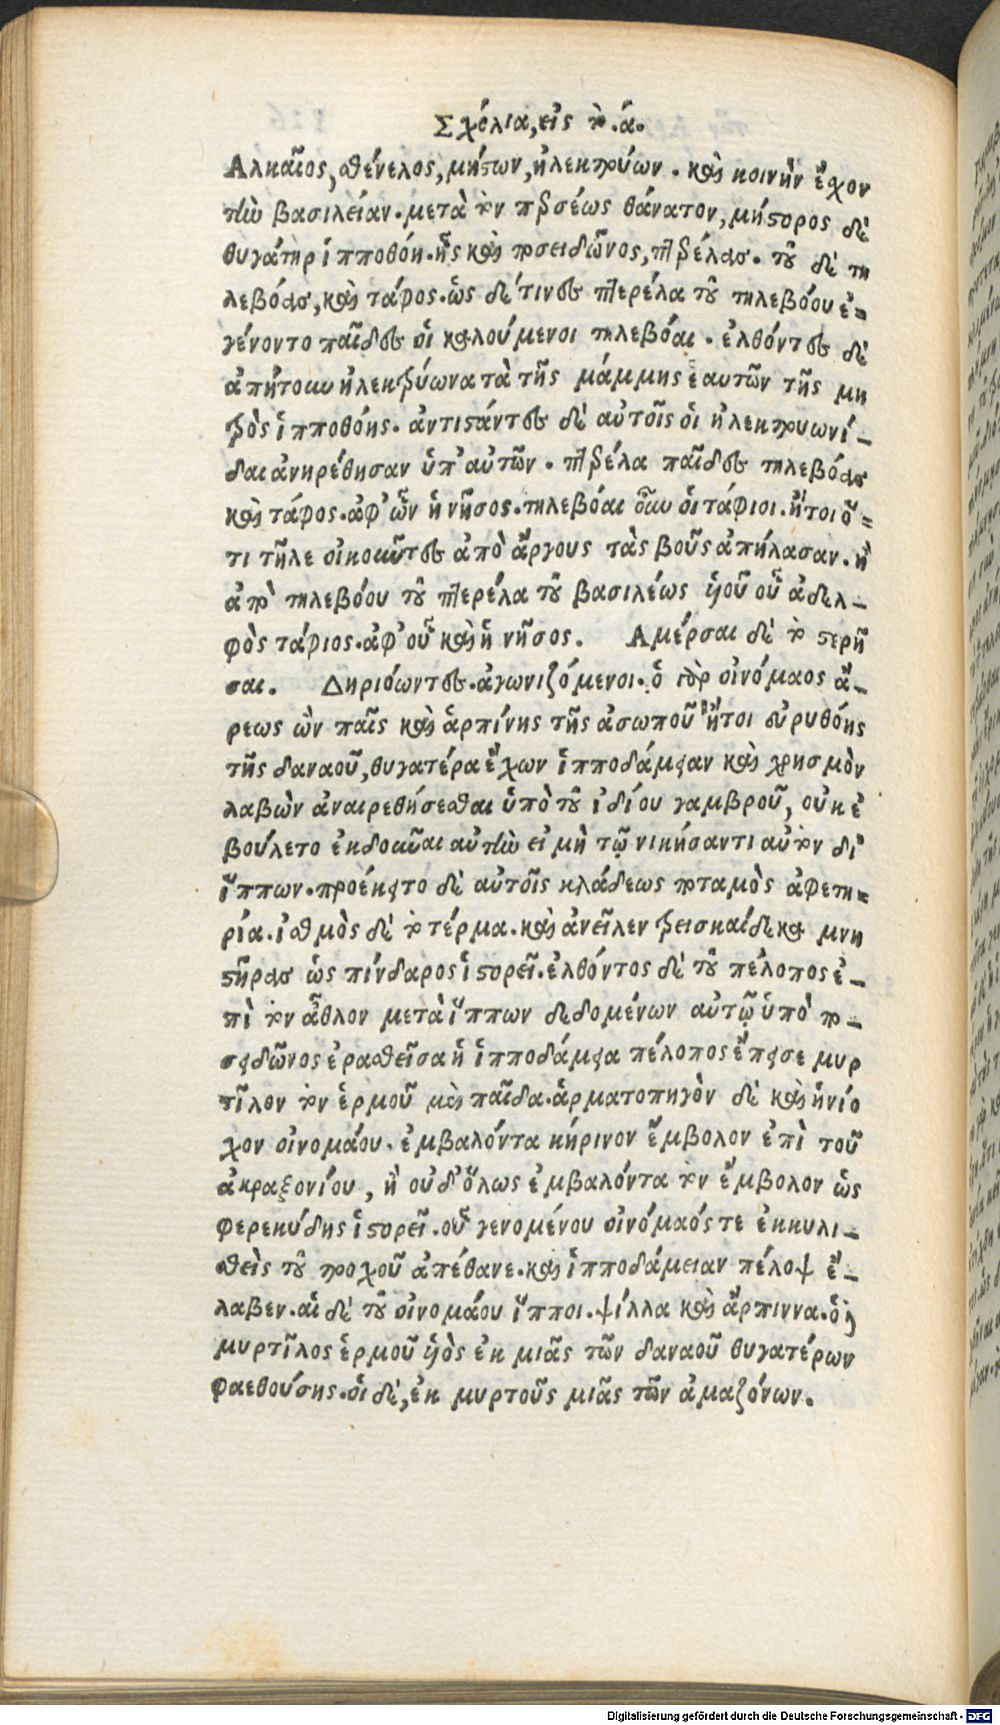 Σχόλια, εἰς τὸ .α.
Αλκαῖος, σθένελος, μήστων, ἠλεκτρύων . καὶ κοινὴν ἔχον
τὴν βασιλείαν . μετὰ τὸν πρσέως θάνατον, μήστορος δὲ
θυγάτηρ ἱπποθόη . ἧς καὶ ποσειδῶνος, πτερέλας . τοῦ δὲ τη
λεβόας, καὶ τάφος . ὡς δέ τινες πτερέλα τοῦ τηλεβόου ἐ=
γένοντο παῖδες οἱ καλούμενοι τηλεβόαι . ἐλθόντες δὲ
ἀπῄτουν ἠλεκτρύωνα τὰ τῆς μάμμης ἑαυτῶν τῆς μη
τρὸς ἱπποθόης . ἀντιστάντες δὲ αὐτοῖς οἱ ἠλεκτρυωνί-
δαι ἀνῃρέθησαν ὑπ' αὐτῶν . πτερέλα παῖδες τηλεβόας
καὶ τάφος . ἀφ' ὧν ἡ νῆσος . τηλεβόαι οὖν οἱ τάφιοι . ἤτοι ὅ=
τι τῆλε οἰκοῦντες ἀπὸ ἄργους τὰς βοῦς ἀπήλασαν . ἢ
ἀπὸ τηλεβόου τοῦ πτερέλα τοῦ βασιλέως υἱοῦ οὗ ἀδελ-
φὸς τάφιος . ἀφ' οὗ καὶ ἡ νῆσος . Αμέρσαι δὲ τὸ στερῆ
σαι . Δηριόωντες . ἀγωνιζόμενοι . ὁ γὰρ οἰνόμαος ἄ-
ρεως ὢν παῖς καὶ ἁρπίνης τῆς ἀσωποῦ ἤτοι εὐρυθόης
τῆς δαναοῦ, θυγατέρα ἔχων ἱπποδάμειαν καὶ χρησμὸν
λαβὼν ἀναιρεθήσεσθαι ὑπὸ τοῦ ἰδίου γαμβροῦ, οὐκ ἐ
βούλετο ἐκδοῦναι αὐτὴν εἰ μὴ τῷ νικήσαντι αὐτὸν δι'
ἵππων . προέκειτο δὲ αὐτοῖς κλάδεως ποταμὸς ἀφετη=
ρία . ἰσθμὸς δὲ τὸ τέρμα . καὶ ἀνεῖλεν τρεισκαίδεκα μνη
στῆρας ὡς πίνδαρος ἱστορεῖ . ἐλθόντος δὲ τοῦ πέλοπος ἐ-
πὶ τὸν ἆθλον μετὰ ἵππων δεδομένων αὐτῷ ὑπὸ πο-
σειδῶνος ἐρασθεῖσα ἡ ἱπποδάμεια πέλοπος ἔπεισε μυρ
τῖλον τὸν ἑρμοῦ μὲν παῖδα . ἁρματοπηγὸν δὲ καὶ ἡνίο
χον οἰνομάου . ἐμβαλόντα κήρινον ἔμβολον ἐπὶ τοῦ
ἀκραξονίου, ἢ οὐδ' ὅλως ἐμβαλόντα τὸν ἔμβολον ὡς
φερεκύδης ἱστορεῖ . οὗ γενομένου οἰνόμαός τε ἐκκυλι-
σθεὶς τοῦ τροχοῦ ἀπέθανε . καὶ ἱπποδάμειαν πέλοψ ἔ-
λαβεν . αἱ δὲ τοῦ οἰνομάου ἵπποι . ψίλλα καὶ ἅρπιννα . ὁ δὲ
μυρτῖλος ἑρμοῦ υἱὸς ἐκ μιᾶς τῶν δαναοῦ θυγατέρων
φαεθούσης . οἱ δὲ, ἐκ μυρτοῦς μιᾶς τῶν ἀμαζόνων .
Digitalisierung gefördert durch die Deutsche Forschungsgemeinschaft - DFG